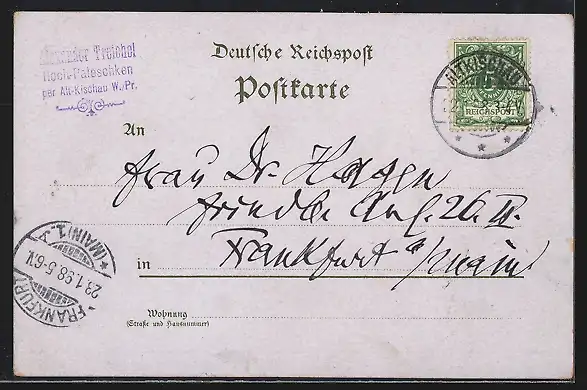 Alexander Treichel
Hoch-Paleschken
per Alt-Kischau W./Pr.
Deutsche Reichspost
Postkarte
ALTKISCHAU
REICHSPOST
An
Frau Dr. Hagge
Anl. 26 II
Frankfurt a/Main
in
FRANKFURT (MAIN) 1.
23.1.98.5-6V.
Wohnung
(Straße und Hausnummer)